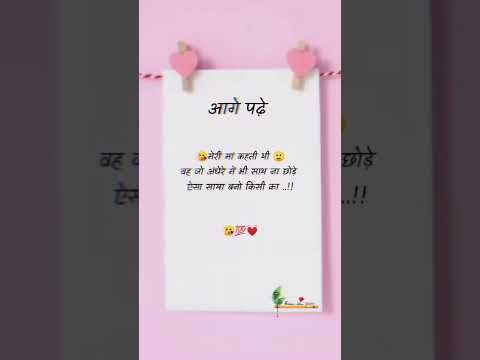 आगे पढ़े
😘मेरी मां कहती थी 🥲
वह जो अंधेरे में भी साथ ना छोड़े
ऐसा साया बनो किसी का ..!!
😘💯❤️